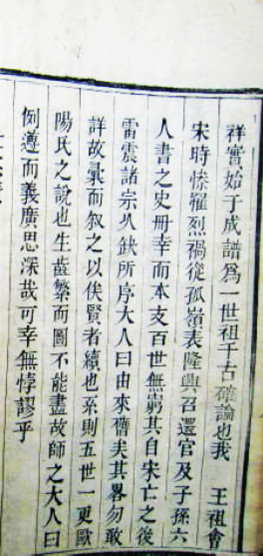 祥實始于成譜爲一世祖千古確論也我 王祖會
宋時慘罹烈禍從孤嶺表隆興召還官及子孫六
人書之史冊幸而本支百世無窮其自宋亡之後
雷震諸宗乆缺所序大人曰由來舊矣其畧勿敢
詳故彙而叙之以俟賢者續也系則五世一更歐
陽氏之說也生齒繁而圖不能盡故師之大人曰
例遵而義廣思深哉可幸無悖謬乎